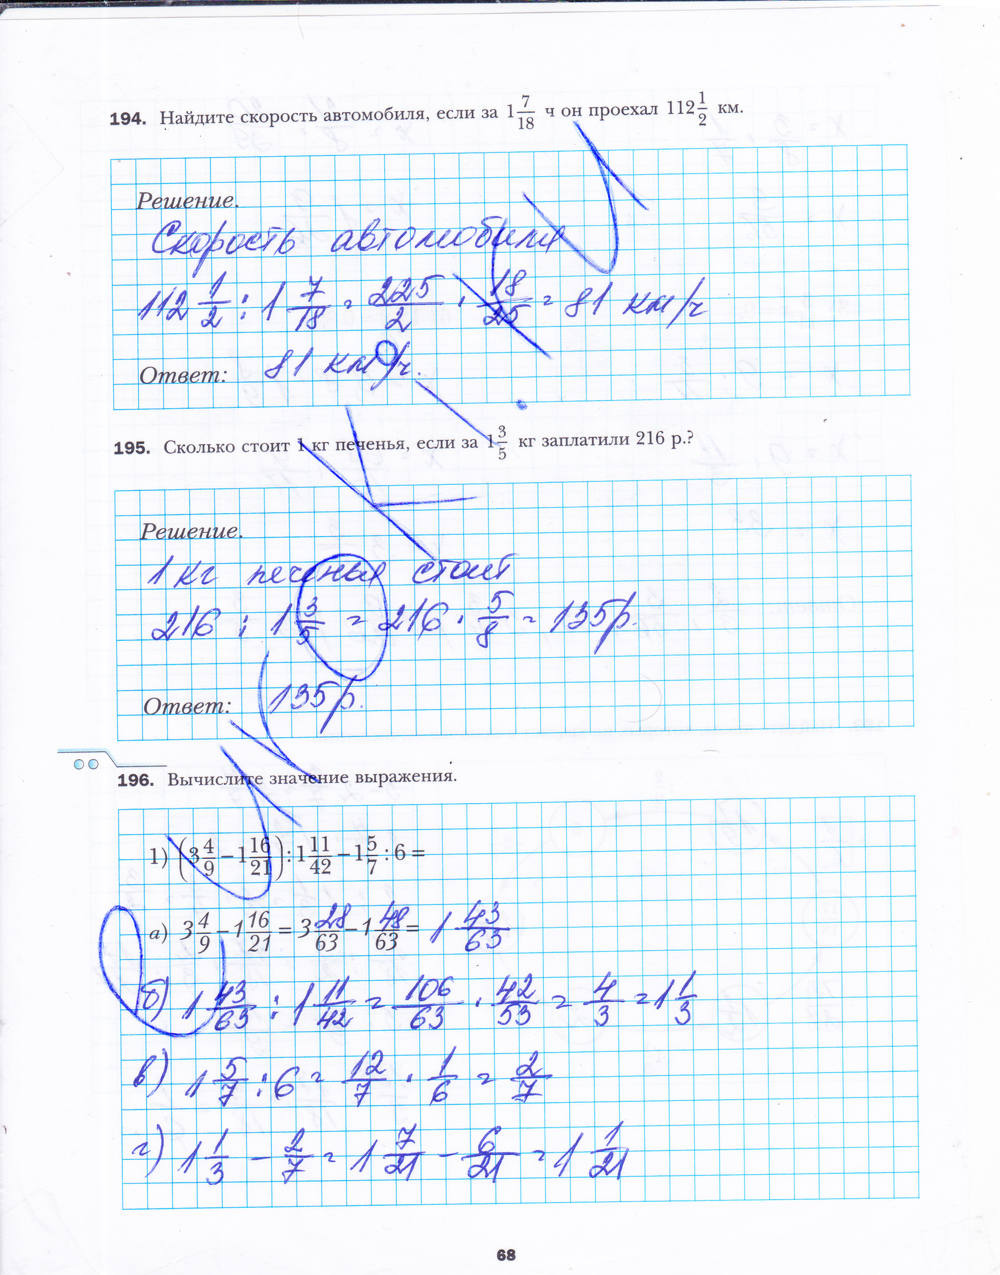 194. Найдите скорость автомобиля, если за 1 7/18 ч он проехал 112 1/2 км.
Решение.
Скорость автомобиля
112 1/2 : 1 7/18 = 225/2 · 18/25 = 81 км/ч
Ответ: 81 км/ч.
195. Сколько стоит 1 кг печенья, если за 1 3/5 кг заплатили 216 р.?
Решение.
1 кг печенья стоит
216 : 1 3/5 = 216 · 5/8 = 135 р.
Ответ: 135 р.
196. Вычислите значение выражения.
1) (3 4/9 − 1 16/21) : 1 11/42 − 1 5/7 : 6 =
а) 3 4/9 − 1 16/21 = 3 28/63 − 1 48/63 = 1 43/63
б) 1 43/63 : 1 11/42 = 106/63 · 42/53 = 4/3 = 1 1/3
в) 1 5/7 : 6 = 12/7 · 1/6 = 2/7
г) 1 1/3 − 2/7 = 1 7/21 − 6/21 = 1 1/21
68